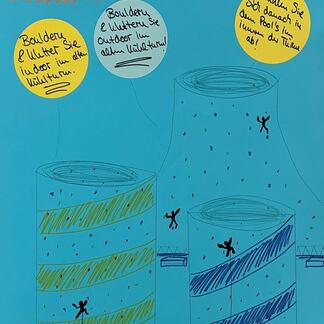 Bouldern
& Klettern Sie
Indoor im alten
Kühlturm.
Bouldern
& Klettern Sie
outdoor im
alten Kühlturm!
Sie
Sich danach in
dem Pool's im
inneren der Türme
ab!